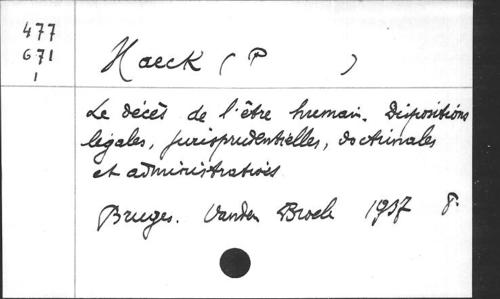 477
671
1
Haeck ( P )
Le décès de l'être humain. Dispositions
légales, jurisprudentielles, doctrinales
et administratives
Bruges. Vanden Broele 1937 8°